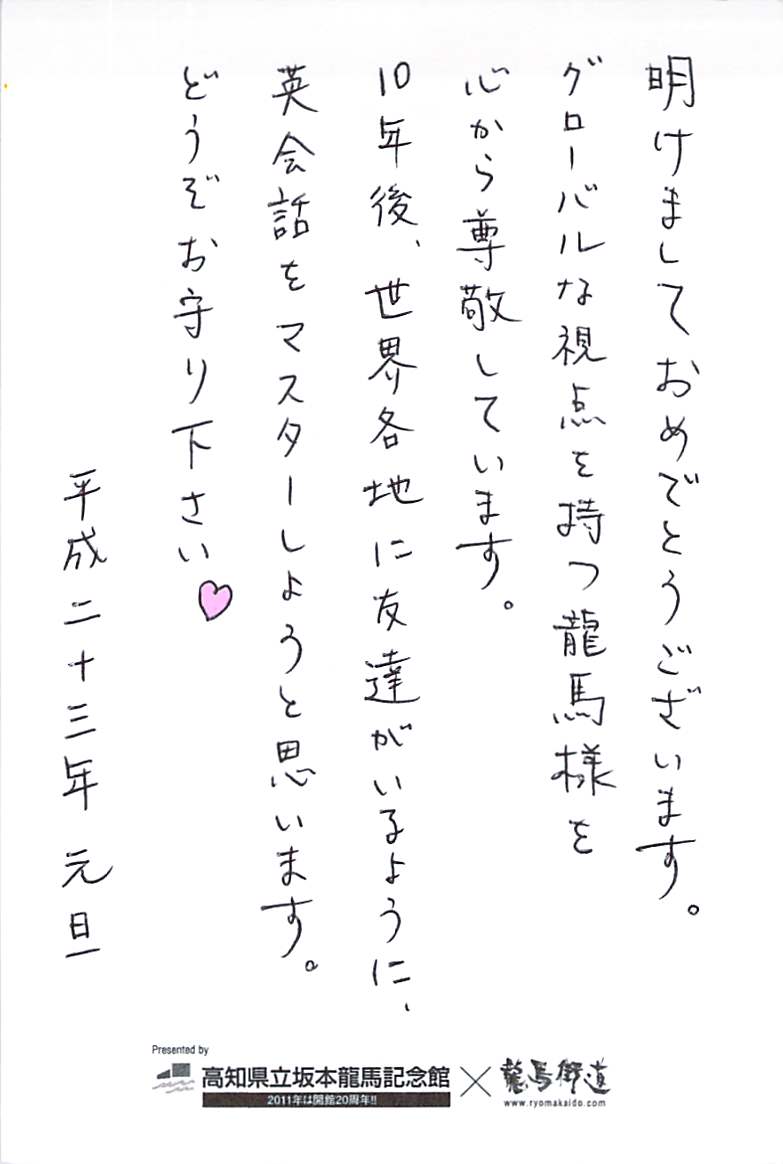 明けましておめでとうございます。
グローバルな視点を持つ龍馬様を
心から尊敬しています。
10年後、世界各地に友達がいるように、
英会話をマスターしようと思います。
どうぞお守り下さい♡
平成二十三年 元旦
Presented by
高知県立坂本龍馬記念館
2011年は開館20周年!!
×
龍馬街道
www.ryomakaido.com